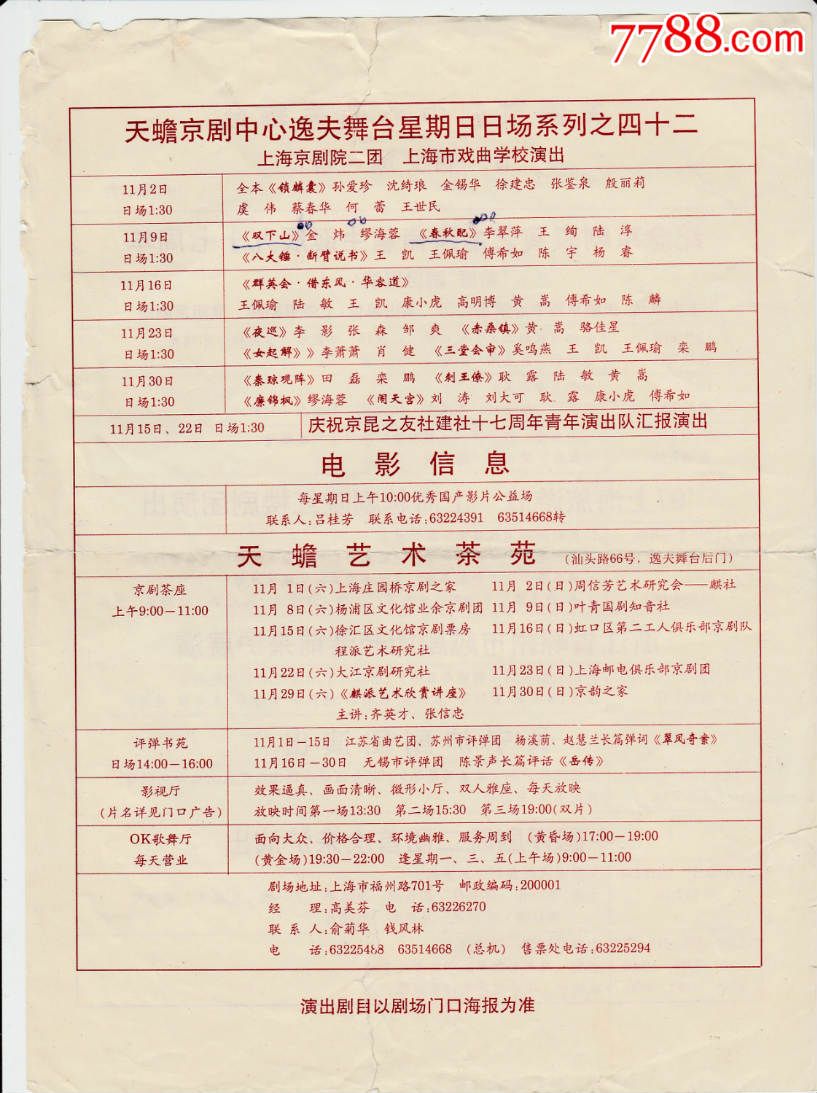 7788.com
天蟾京剧中心逸夫舞台星期日日场系列之四十二
上海京剧院二团 上海市戏曲学校演出
11月2日 全本《锁麟囊》孙爱珍 沈绮琅 金锡华 徐建忠 张鉴泉 殷丽莉
日场1:30 虞 伟 蔡春华 何 蕾 王世民
11月9日 《双下山》金 炜 缪海蓉 《春秋配》李翠萍 王 绚 陆 淳
日场1:30 《八大锤·断臂说书》王 凯 王佩瑜 傅希如 陈 宇 杨 睿
11月16日 《群英会·借东风·华容道》
日场1:30 王佩瑜 陆 敏 王 凯 康小虎 高明博 黄 嵩 傅希如 陈 麟
11月23日 《夜巡》李 影 张 森 邹 爽 《赤桑镇》黄 嵩 骆佳星
日场1:30 《女起解》》李萧萧 肖 健 《三堂会审》奚鸣燕 王 凯 王佩瑜 栾 鹏
11月30日 《秦琼观阵》田 磊 栾 鹏 《刺王僚》耿 露 陆 敏 黄 嵩
日场1:30 《廉锦枫》缪海蓉 《闹天宫》刘 涛 刘大可 耿 露 康小虎 傅希如
11月15日、22日 日场1:30 庆祝京昆之友社建社十七周年青年演出队汇报演出
电影信息
每星期日上午10:00优秀国产影片公益场
联系人:吕桂芳 联系电话:63224391 63514668转
天蟾艺术茶苑 (汕头路66号,逸夫舞台后门)
京剧茶座 11月 1日(六)上海庄园桥京剧之家 11月 2日(日)周信芳艺术研究会——麒社
上午9:00—11:00 11月 8日(六)杨浦区文化馆业余京剧团 11月 9日(日)叶青国剧知音社
11月15日(六)徐汇区文化馆京剧票房 11月16日(日)虹口区第二工人俱乐部京剧队
程派艺术研究社
11月22日(六)大江京剧研究社 11月23日(日)上海邮电俱乐部京剧团
11月29日(六)《麒派艺术欣赏讲座》 11月30日(日)京韵之家
主讲:齐英才、张信忠
评弹书苑 11月1日—15日 江苏省曲艺团、苏州市评弹团 杨溪萠、赵慧兰长篇弹词《翠凤奇案》
日场14:00—16:00 11月16日—30日 无锡市评弹团 陈景声长篇评话《岳传》
影视厅 效果逼真、画面清晰、微形小厅、双人雅座、每天放映
(片名详见门口广告) 放映时间第一场13:30 第二场15:30 第三场19:00(双片)
OK歌舞厅 面向大众、价格合理、环境幽雅、服务周到 (黄昏场)17:00—19:00
每天营业 (黄金场)19:30—22:00 逢星期一、三、五(上午场)9:00—11:00
剧场地址:上海市福州路701号 邮政编码:200001
经 理:高美芬 电 话:63226270
联 系 人:俞菊华 钱风林
电 话:63225488 63514668 (总机) 售票处电话:63225294
演出剧目以剧场门口海报为准